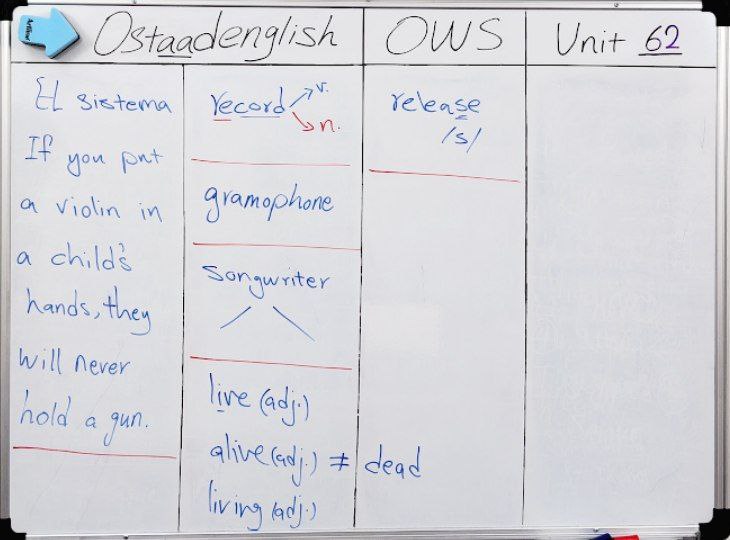 Ostaadenglish
OWS
Unit 62
El sistema
If you put
a violin in
a child's
hands, they
will never
hold a gun.
record v.
n.
gramophone
songwriter
live (adj.)
alive (adj.) ≠ dead
living (adj.)
release
/s/